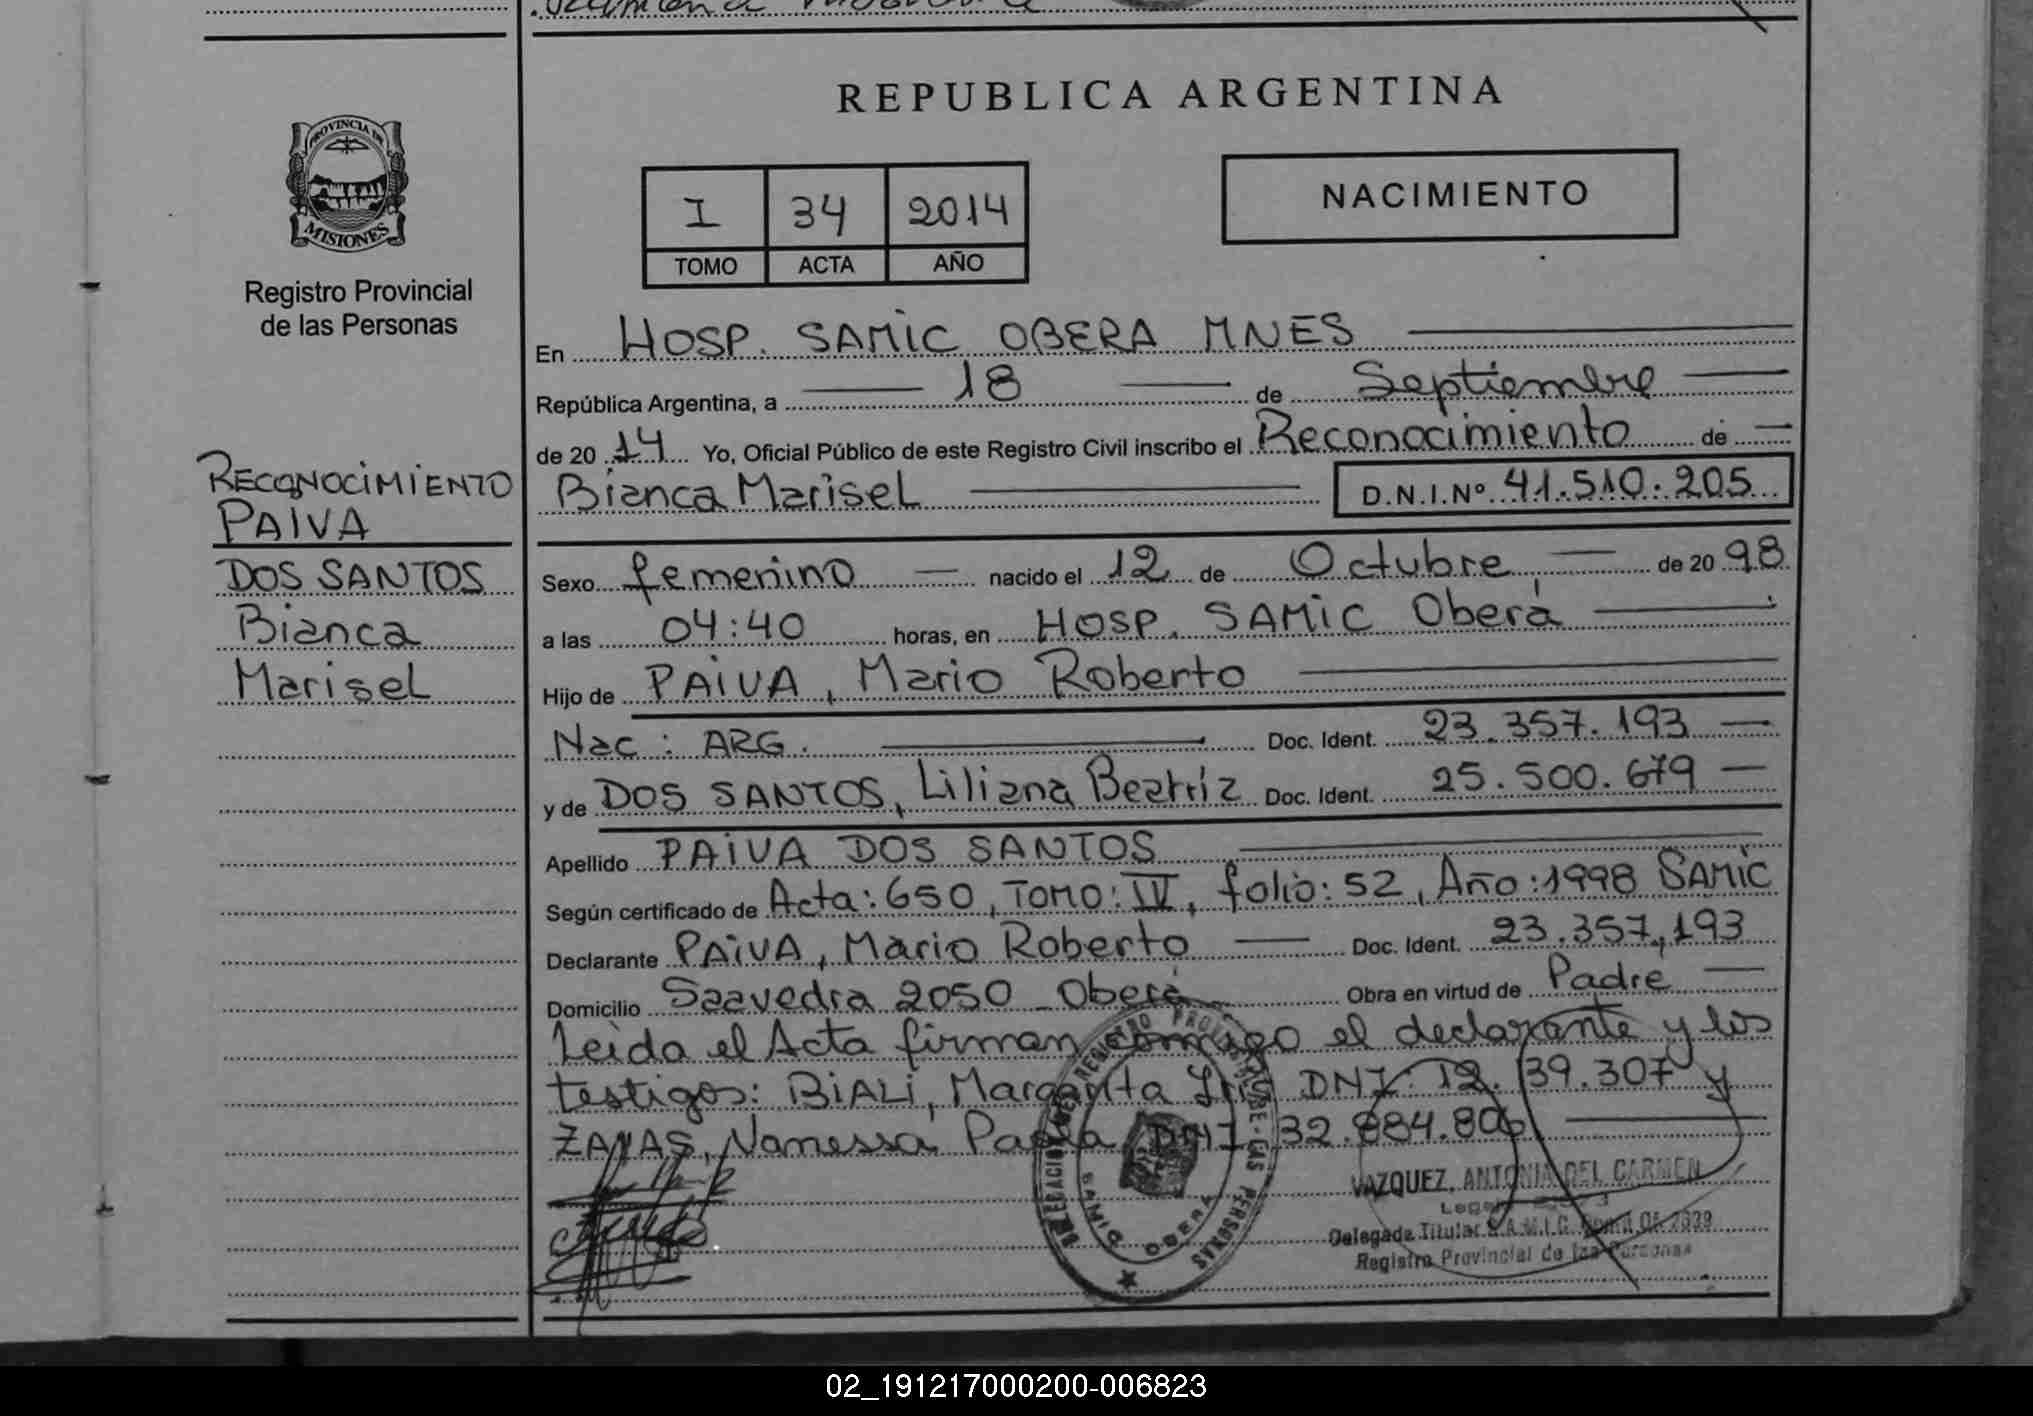 REPUBLICA ARGENTINA
PROVINCIA DE
MISIONES
Registro Provincial
de las Personas
I 34 2014
TOMO ACTA AÑO
NACIMIENTO
En HOSP. SAMIC OBERA MNES
República Argentina, a 18 de Septiembre
de 2014 Yo, Oficial Público de este Registro Civil inscribo el Reconocimiento de
Bianca Marisel D.N.I.Nº 41.510.205
RECONOCIMIENTO
PAIVA
DOS SANTOS
Bianca
Marisel
Sexo femenino nacido el 12 de Octubre, de 20 98
a las 04:40 horas, en HOSP. SAMIC Oberá
Hijo de PAIVA, Mario Roberto
Nac: ARG. Doc. Ident. 23.357.193
y de DOS SANTOS, Liliana Beatríz Doc. Ident. 25.500.679
Apellido PAIVA DOS SANTOS
Según certificado de Acta: 650, TOMO: IV, folio: 52, Año: 1998 SAMIC
Declarante PAIVA, Mario Roberto Doc. Ident. 23.357,193
Domicilio Saavedra 2050 - Oberá Obra en virtud de Padre
Leida el Acta firman conmigo el declarante y los
testigos: BIALI, Margarita DNI: 12.139.307 y
ZAYAS, Vanessa Paola DNI 32.884.806
DELEGACION REGISTRO PROVINCIAL DE LAS PERSONAS
SAMIC OBERA
VAZQUEZ, ANTONIA DEL CARMEN
Delegada Titular S.A.M.I.C.
Registro Provincial de las Personas
02_191217000200-006823